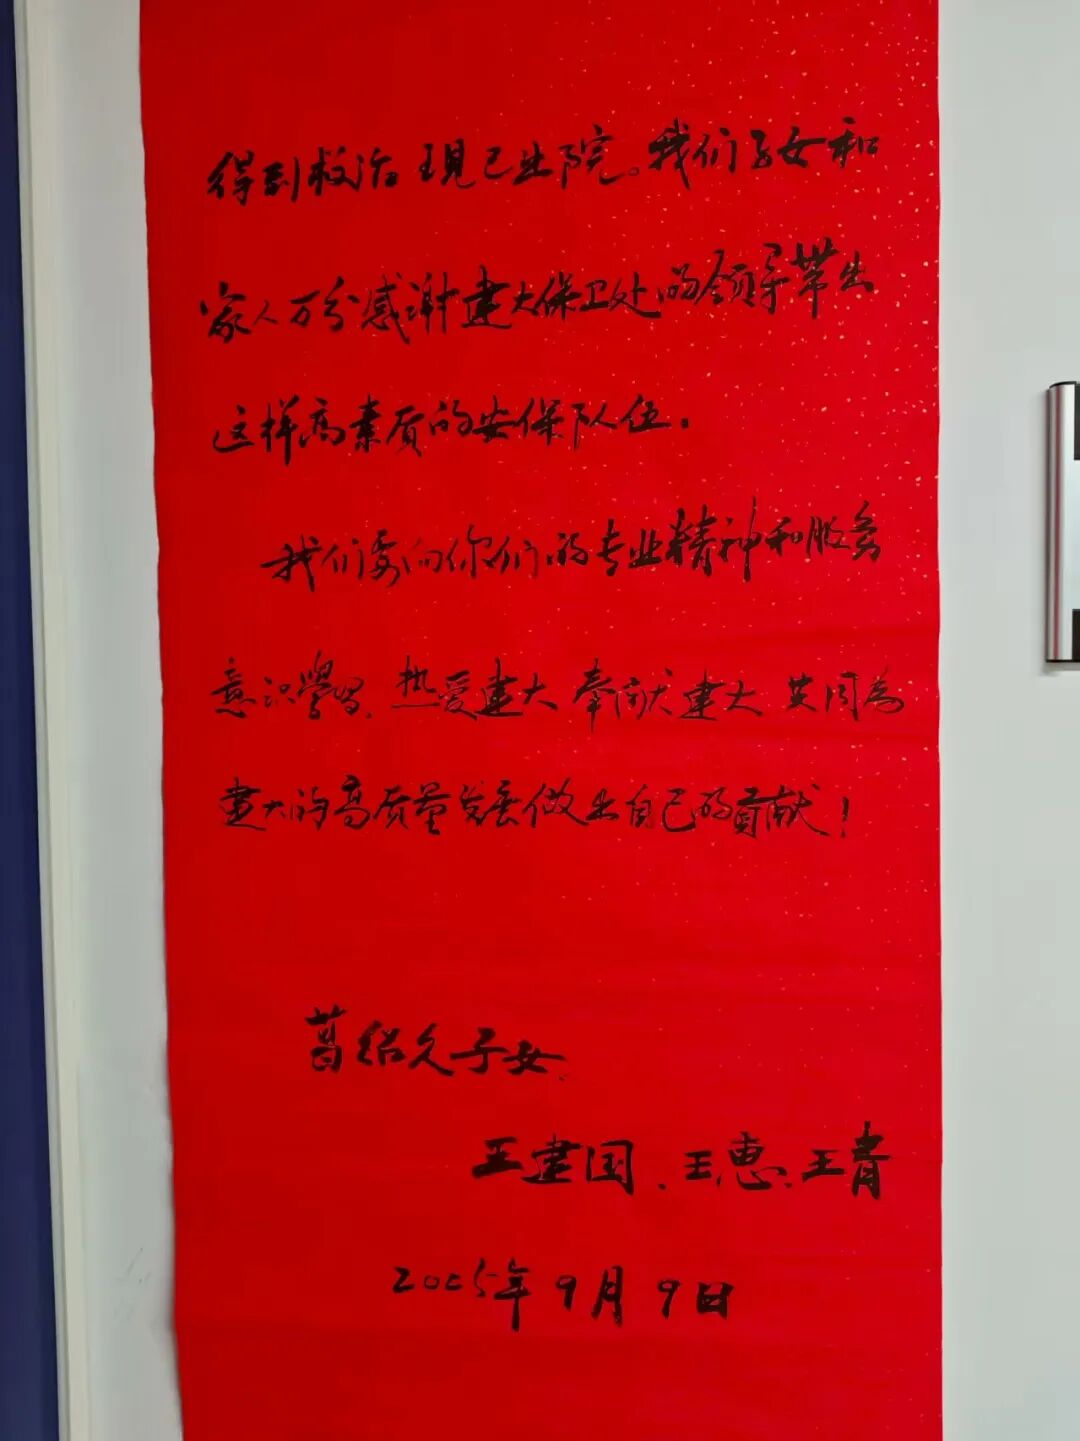 得到救治现已出院。我们子女和
家人万分感谢建大保卫处的领导带出
这样高素质的安保队伍.
我们要向你们的专业精神和服务
意识学习、热爱建大 奉献建大 共同为
建大的高质量发展做出自己的贡献!
葛绍久子女、
王建国、王惠、王青
2025年9月9日